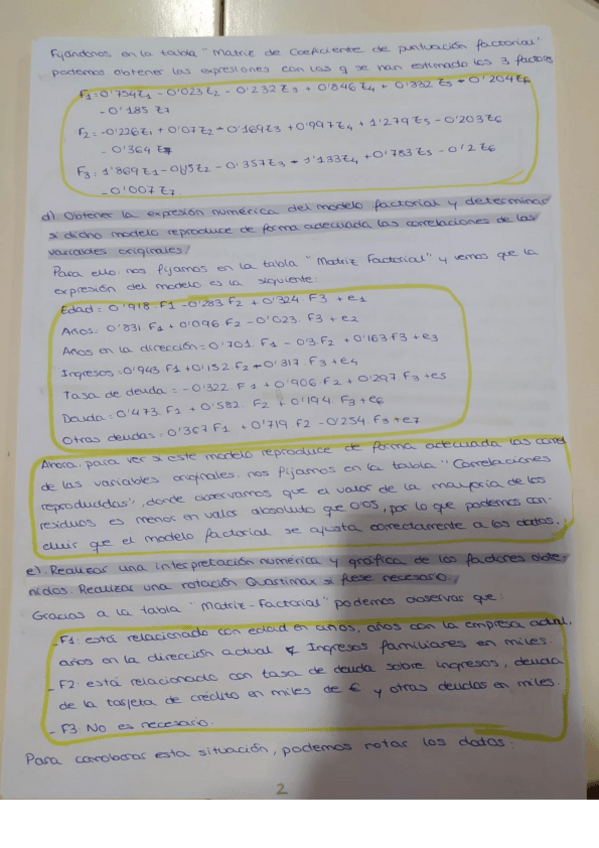 Fijándonos en la tabla "Matriz de Coeficiente de puntuación factorial"
podemos obtener las expresiones con las q se han estimado los 3 factores
F1: 0'754Z1 - 0'023Z2 - 0'232Z3 + 0'846Z4 + 0'332Z5 - 0'204Z6
- 0'185 Z7
F2 = -0'226Z1 + 0'07Z2 - 0'169Z3 + 0'997Z4 + 1'279Z5 - 0'203Z6
- 0'364 Z7
F3: 1'869Z1 - Z2 - 0'357Z3 - 1'133Z4 + 0'783Z5 - 0'2Z6
- 0'007Z7
d) Obtener la expresión numérica del modelo factorial y determinar
si dicho modelo reproduce de forma adecuada las correlaciones de las
variables originales.
Para ello nos fijamos en la tabla "Matriz Factorial" y vemos que la
expresión del modelo es la siguiente:
Edad: 0'918. F1 - 0'283 F2 + 0'324. F3 + e1
Años: 0'831. F1 + 0'096 F2 - 0'023. F3 + e2
Años en la dirección = 0'701. F1 - 0'3. F2 + 0'163 F3 + e3
Ingresos: 0'943 F1 + 0'152 F2 - 0'317. F3 + e4
Tasa de deuda = -0'322. F1 + 0'906. F2 + 0'297. F3 + e5
Deuda: 0'473. F1 + 0'582. F2 + 0'194 F3 + e6
Otras deudas: 0'367 F1 + 0'719. F2 - 0'254. F3 + e7
Ahora, para ver si este modelo reproduce de forma adecuada las correl
de las variables originales. nos fijamos en la tabla "Correlaciones
reproducidas", donde observamos que el valor de la mayoría de los
residuos es menor en valor absoluto que 0'05, por lo que podemos con-
cluir que el modelo factorial se ajusta correctamente a los datos.
e) Realizar una interpretación numérica y gráfica de los factores obte
nidos. Realizar una rotación Quartimax si fuese necesario.
Gracias a la tabla "Matriz-Factorial" podemos observar que:
- F1: está relacionado con edad en años, años con la empresa actual,
años en la dirección actual y Ingresos familiares en miles.
- F2: está relacionado con tasa de deuda sobre ingresos, deuda
de la tarjeta de crédito en miles de € y otras deudas en miles.
- F3: No es necesario.
Para corroborar esta situación, podemos rotar los datos:
2